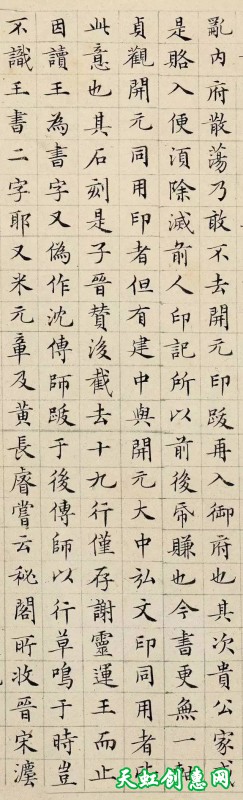 亂内府散蕩乃敢不去開元印跋再入御府也其次貴公家或
是賂入便須除滅前人印記所以前後帋賺也今書更無一軸
貞觀開元同用印者但有建中與開元大中弘文印同用者皆
此意也其石刻是子晉贊後截去十九行僅存謝靈運王而止
因讀王為書字又偽作沈傳師跋于後傳師以行草鳴于時豈
不識王書二字耶又米元章及黄長睿嘗云秘閣所收晉宋灋
天虹创意网